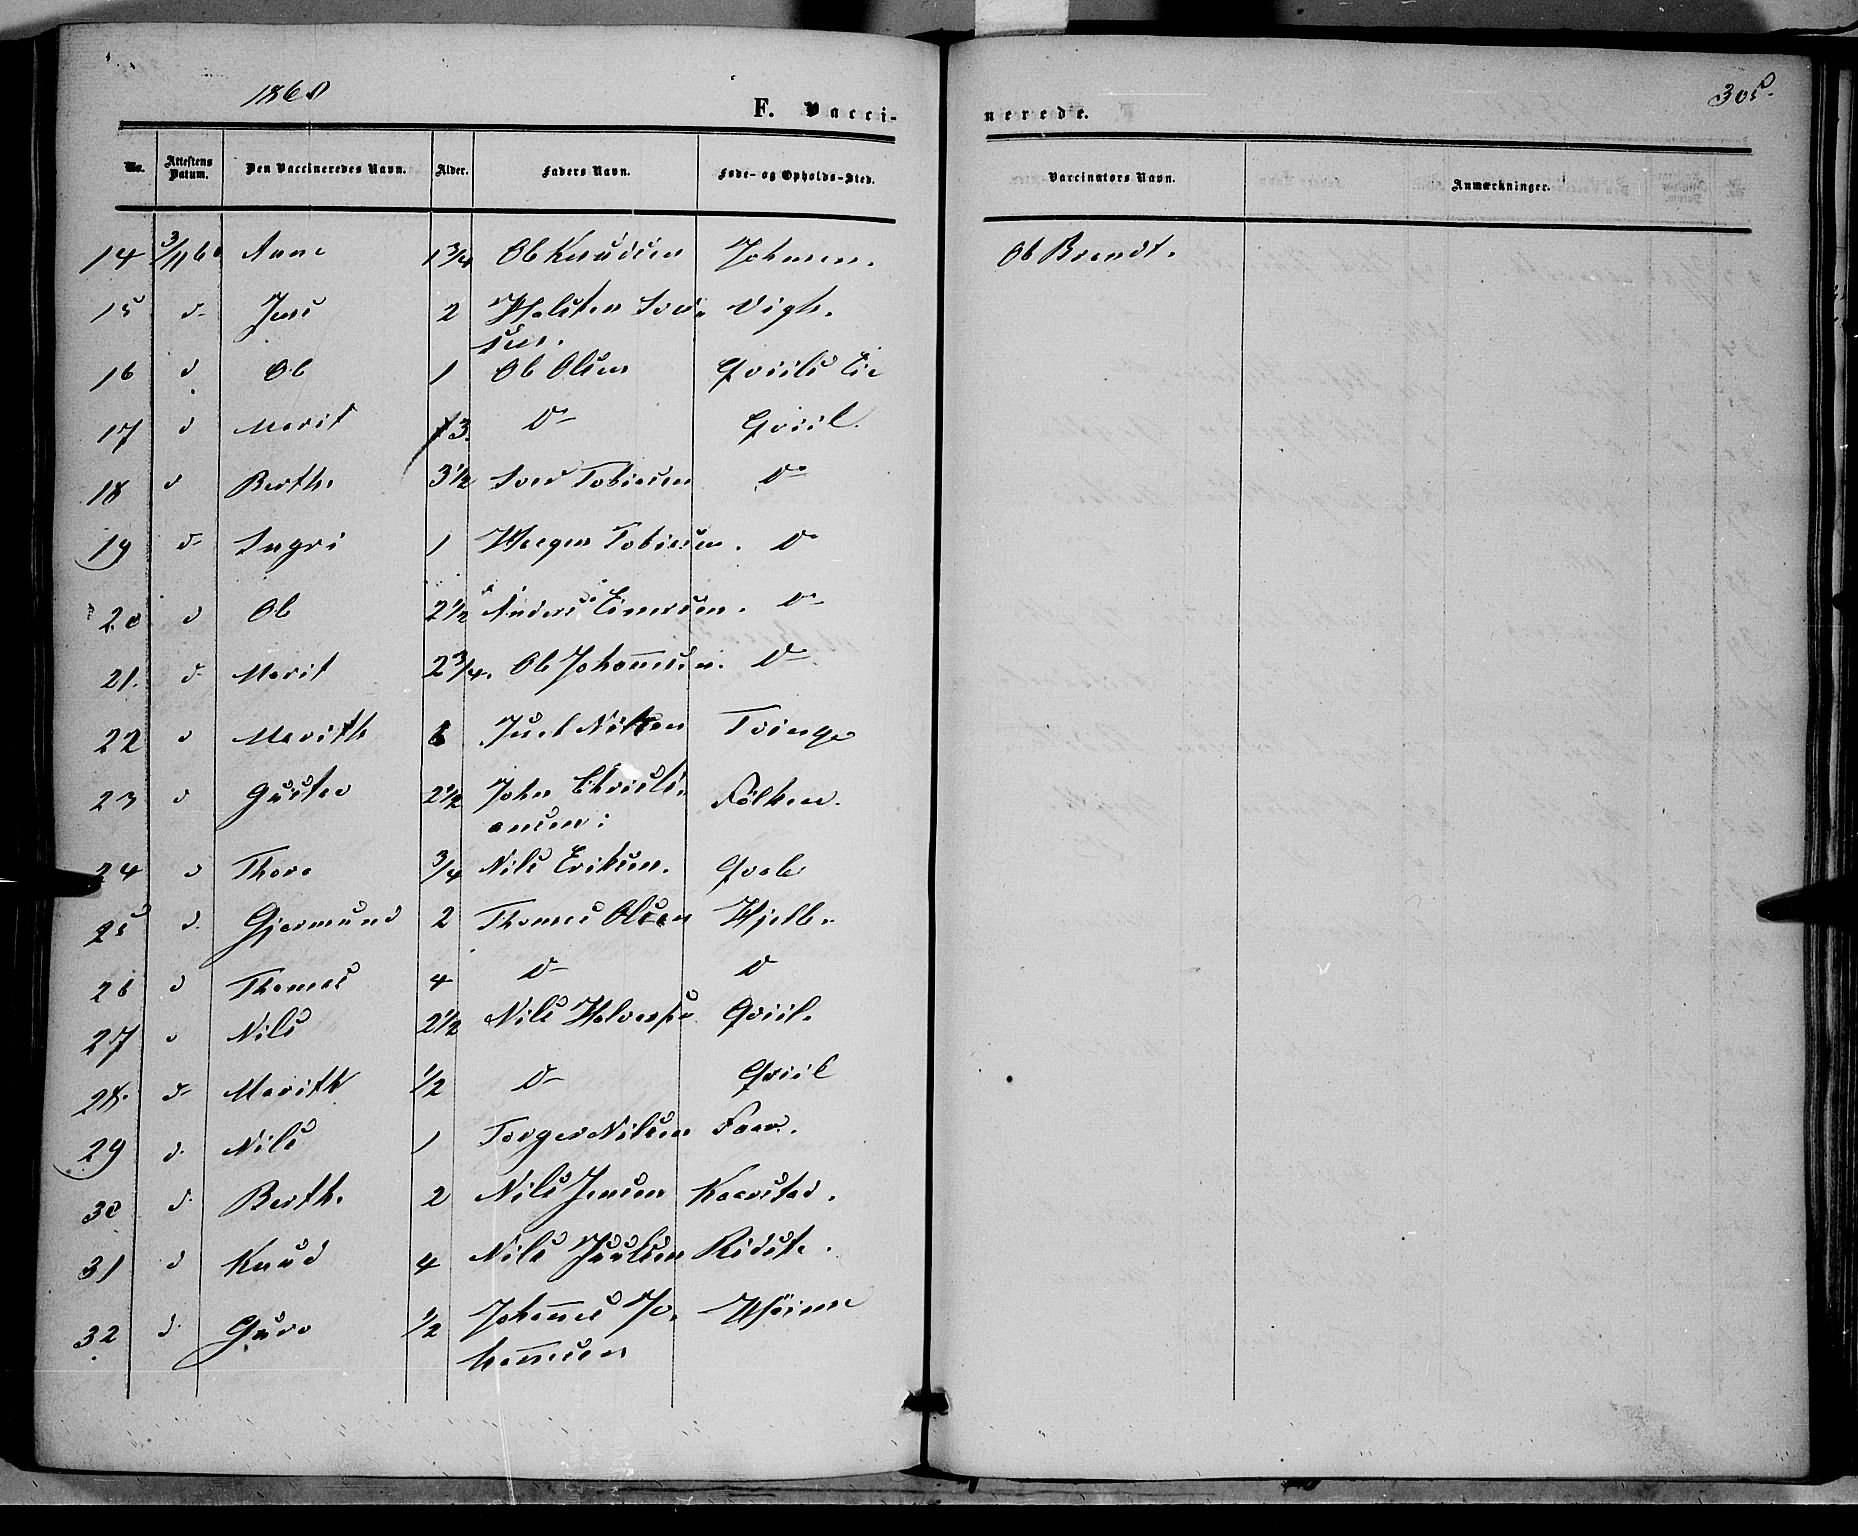 1860
F. Vacci-
nerede.
305.
No. Attestens Datum. Den Vaccineredes Navn. Alder. Faders Navn. Føde- og Opholds-Sted. Vaccinators Navn. Anmærkninger.
14 3/11 60 Anne 1 3/4 Ole Knudsen Ole Brandt.
15 d- Jens 2 Halsten Iver-
sen.
16 d Ole 1 Ole Olsen Qviils Eie
17 d Marit 13. D- Qviil.
18 d Berthe 3 1/2 Iver Tobiesen D-
19 d- Ingri 1 Haagen Tobiesen. D-
20 d Ole 2 1/2 Anders Einersen. D-
21. d- Marit 2 3/4. Ole Johannesen. D-
22 d Marith Juel Nilsen Tvinge
23 d Gustav 2 1/2 John Christi-
ansen: Følken.
24 d Thora 3/4 Nils Eriksen. Qvale
25 d. Gjermund 2 Thomas Olsen Hjelle.
26 d Thomas 4 D- D
27 d Nils 2 1/2 Nils Qviil.
28. d- Marith 1/2 D- Qviil
29 d. Nils 1 Torger Nilsen
30 d. Berthe 2 Nils Jensen
31 d Knud 4 Nils Juulsen Ridste.
32 d. Guro 1/2 Johannes Jo-
hannesen